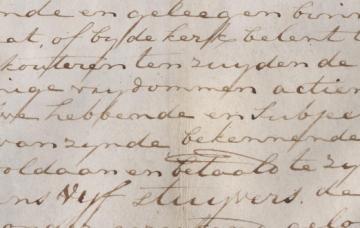 nde en geleegen binn
at, of by de kerk belent t
houteren ten zuyden de
nige vrydommen actien
we hebbende en subjec
van zynde bekennende
oldaan en betaalt te zy
ens Vyf stuyvers. de